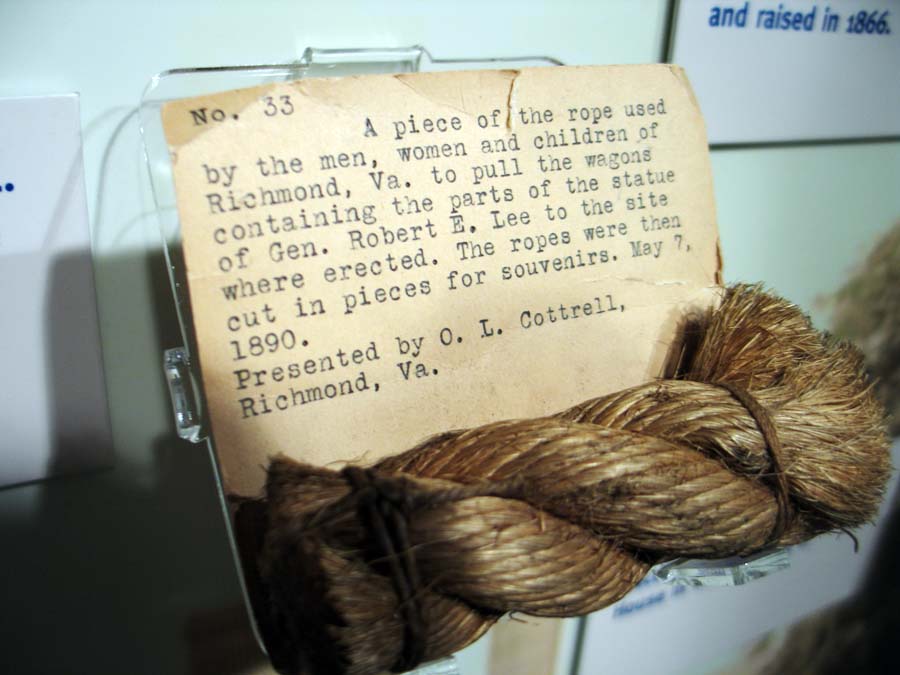 and raised in 1866.
No. 33
A piece of the rope used
by the men, women and children of
Richmond, Va. to pull the wagons
containing the parts of the statue
of Gen. Robert E. Lee to the site
where erected. The ropes were then
cut in pieces for souvenirs. May 7,
1890.
Presented by O. L. Cottrell,
Richmond, Va.